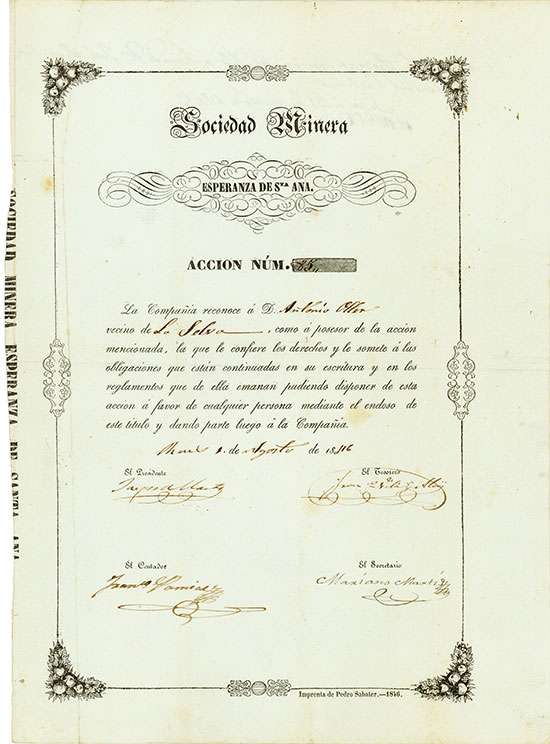 Sociedad Minera
ESPERANZA DE Sᵗᵃ ANA.
ACCION NÚM. 85,
La Compañia reconoce á D. António Oller
vecino de La Selva, como á posesor de la accion
mencionada, la que le confiere los derechos y le somete á las
obligaciones que están continuadas en su escritura y en los
reglamentos que de ella emanan pudiendo disponer de esta
accion á favor de cualquier persona mediante el endoso de
este título y dando parte luego á la Compañia.
de Agosto de 1846
El Presidente
El Tesorero
El Contador
El Secretario
Mariano Martí
Imprenta de Pedro Sabater.—1846.
SOCIEDAD MINERA ESPERANZA DE SANTA ANA.